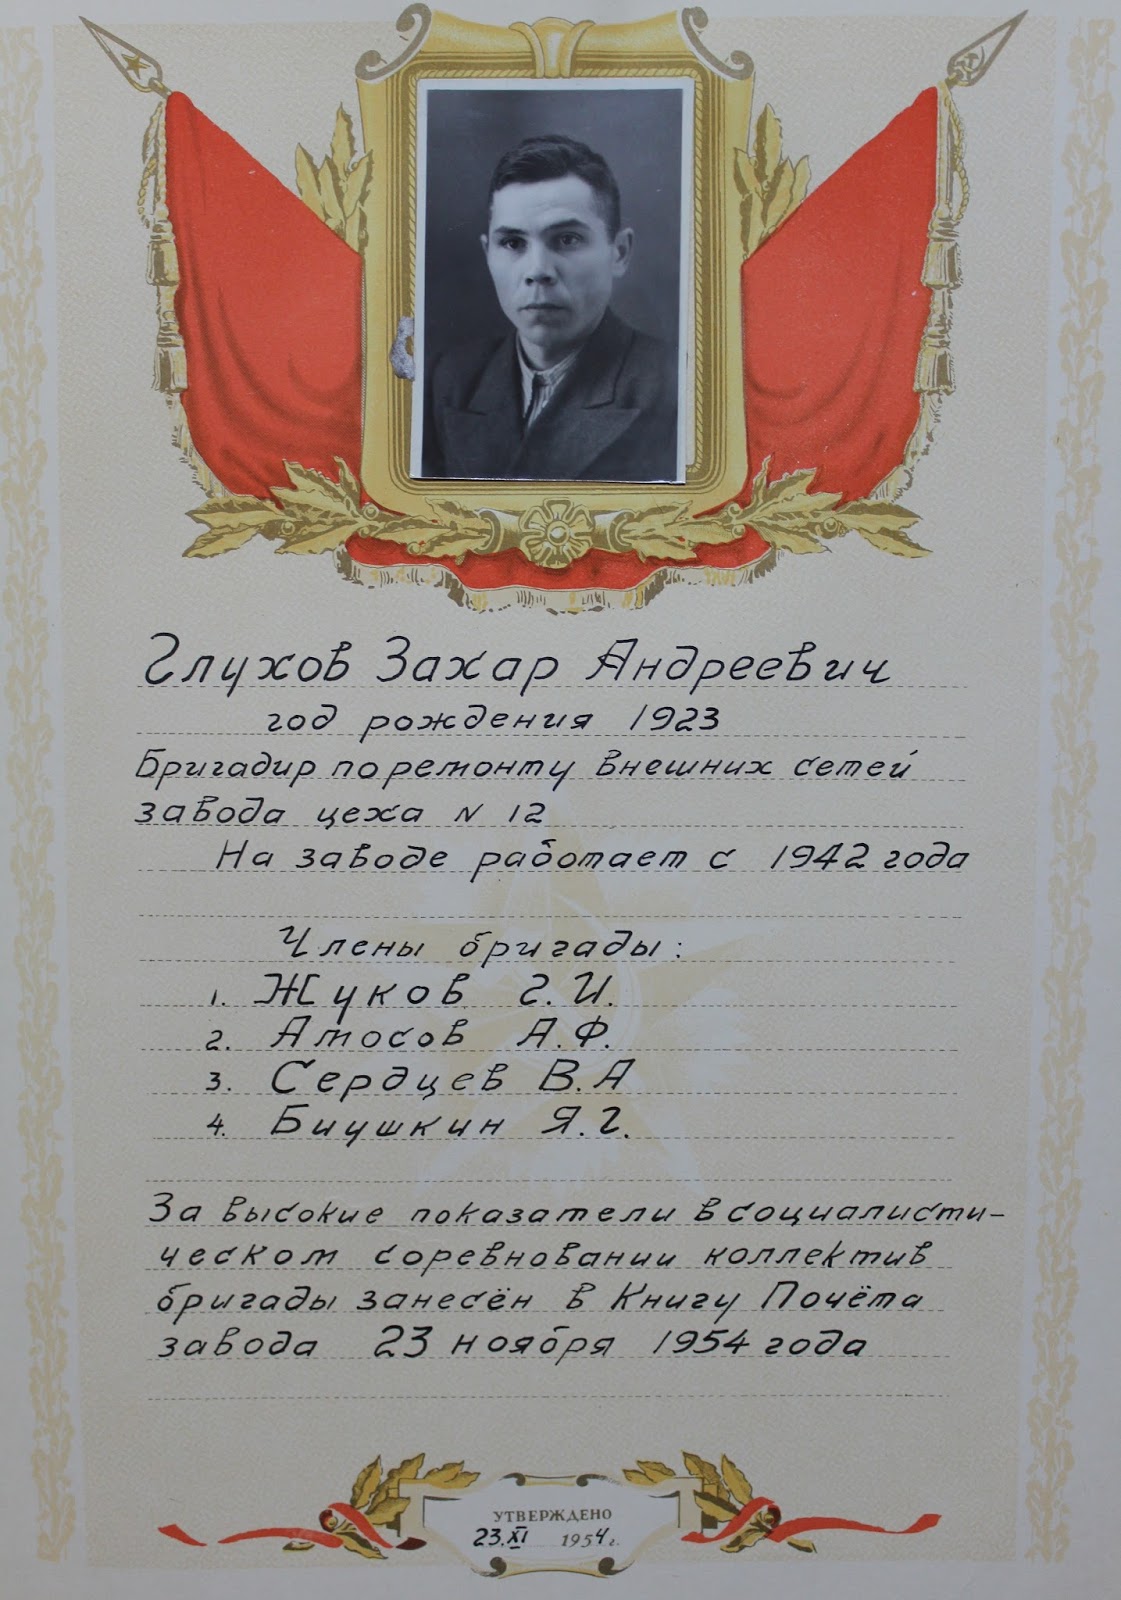 Глухов Захар Андреевич
год рождения 1923
Бригадир по ремонту внешних сетей
завода цеха N 12
На заводе работает с 1942 года
Члены бригады:
1. Жуков Г.И.
2. Амосов А.Ф.
3. Сердцев В.А
4. Биушкин Я.Г.
За высокие показатели в социалисти-
ческом соревновании коллектив
бригады занесён в Книгу Почёта
завода 23 ноября 1954 года
УТВЕРЖДЕНО
23.XI 1954 г.